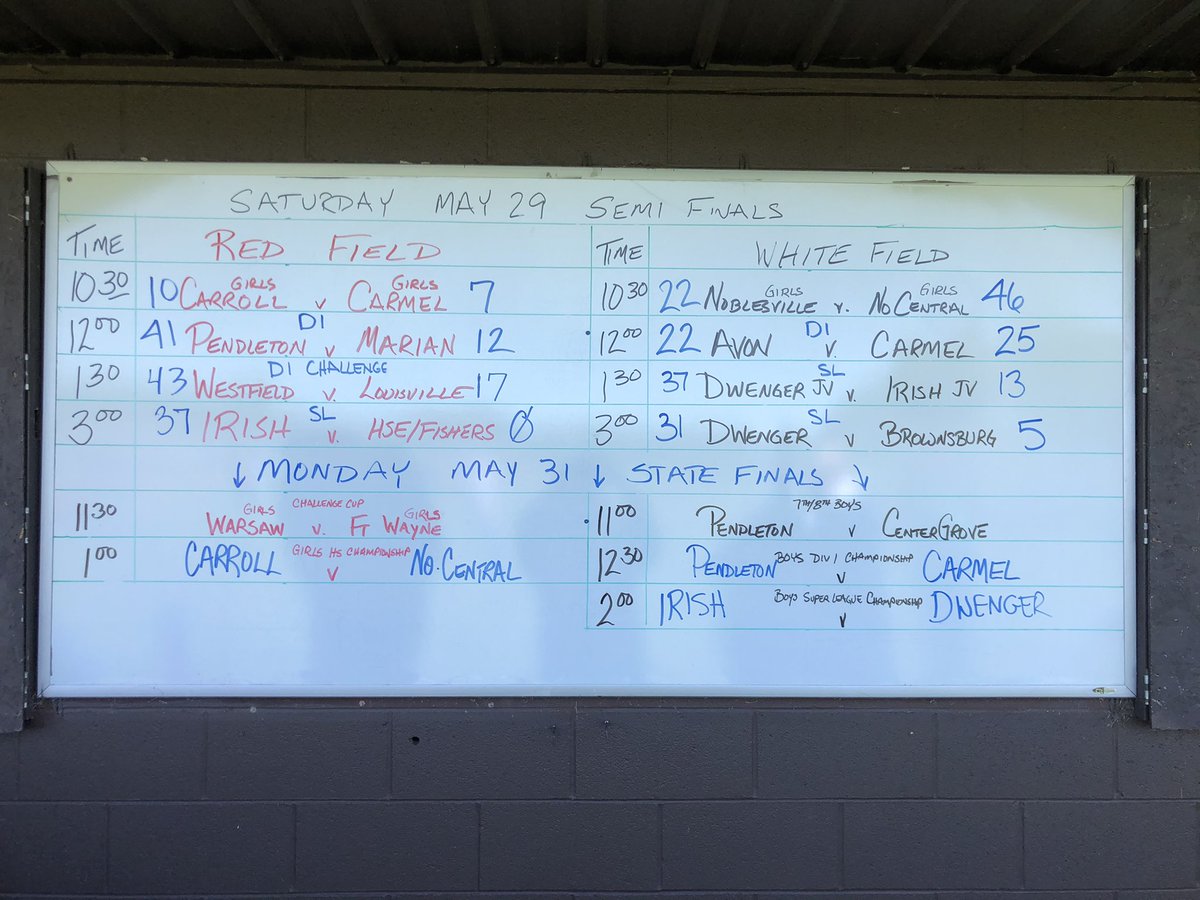 SATURDAY MAY 29 SEMI FINALS
TIME RED FIELD TIME WHITE FIELD
10 30 10 CARROLL GIRLS v CARMEL GIRLS 7 10 30 22 NOBLESVILLE GIRLS v. NO CENTRAL GIRLS 46
12 00 41 PENDLETON D1 v MARIAN 12 12 00 22 AVON D1 v. CARMEL 25
1 30 43 WESTFIELD D1 CHALLENGE v. LOUISVILLE 17 1 30 37 DWENGER JV SL v. IRISH JV 13
3 00 37 IRISH SL v. HSE/FISHERS 0 3 00 31 DWENGER SL v BROWNSBURG 5
↓ MONDAY MAY 31 ↓ STATE FINALS ↓
11 30 GIRLS WARSAW CHALLENGE CUP v. GIRLS FT WAYNE 11 00 PENDLETON 7TH/8TH BOYS v CENTER GROVE
1 00 CARROLL GIRLS HS CHAMPIONSHIP v NO. CENTRAL 12 30 PENDLETON BOYS DIV 1 CHAMPIONSHIP v CARMEL
2 00 IRISH BOYS SUPER LEAGUE CHAMPIONSHIP v DWENGER